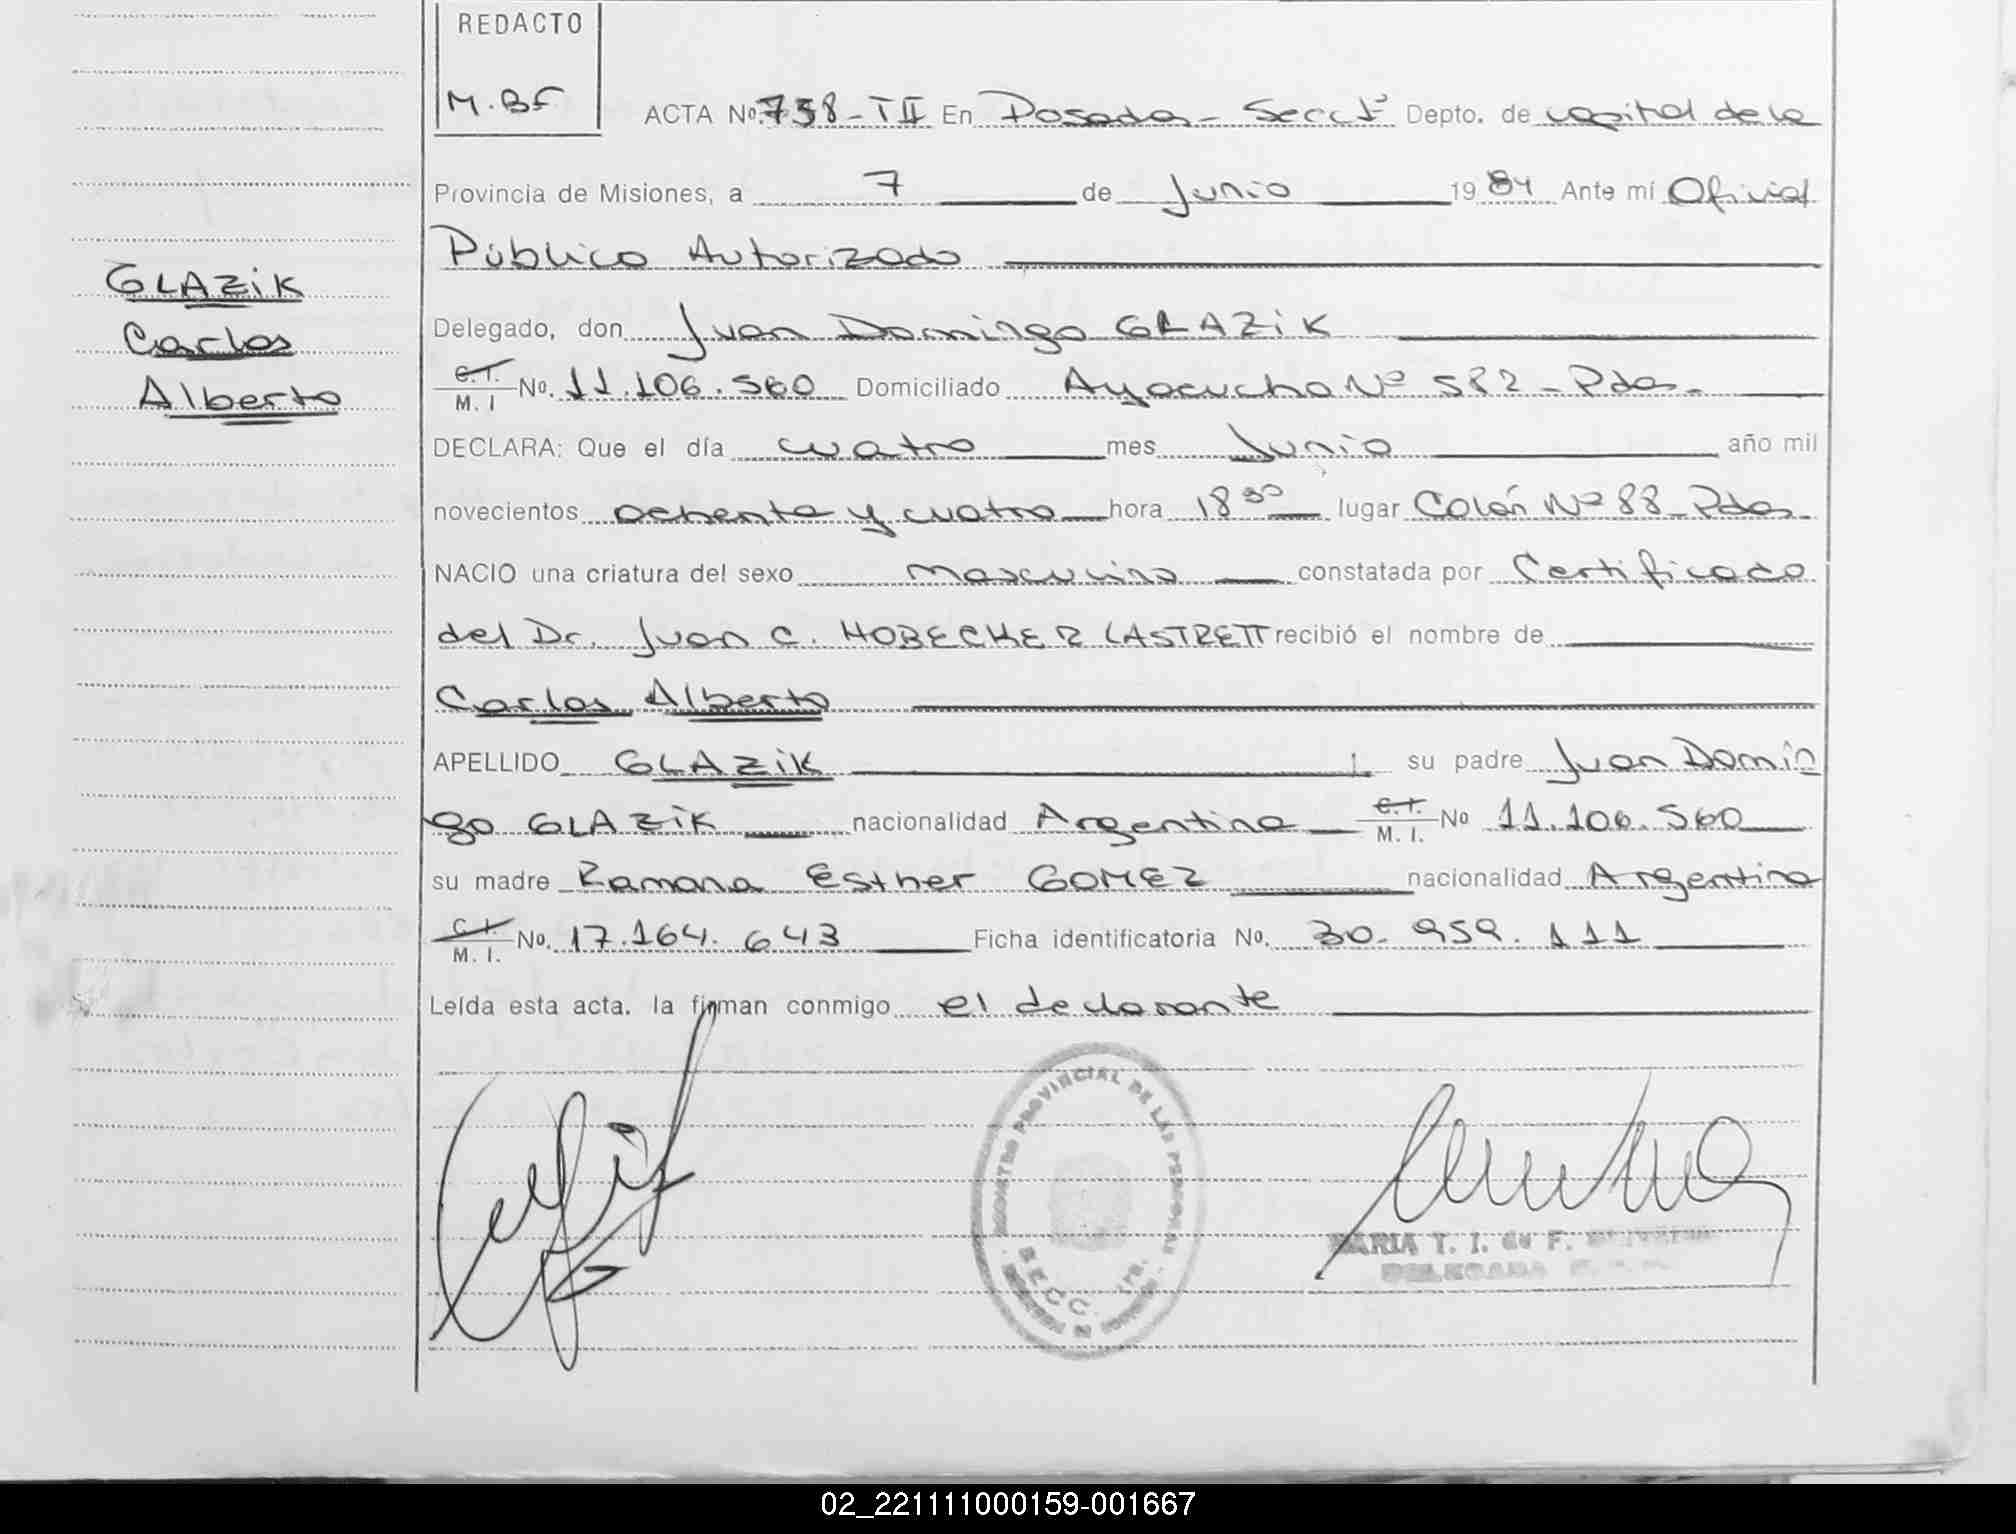 REDACTO
M.BF
ACTA No. 738-TII En Posadas - Secc 1ª Depto. de capital de la
Provincia de Misiones, a 7 de Junio 1984 Ante mí Oficial
Público Autorizado
GLAZiK
Carlos
Alberto
Delegado, don Juan Domingo GLAZiK
C.I. M. I No. 11.106.560 Domiciliado Ayacucho Nº 582 - Pdas.
DECLARA: Que el día cuatro mes Junio año mil
novecientos ochenta y cuatro hora 18 30 lugar Colón Nº 88 - Pdas.
NACIO una criatura del sexo masculino constatada por Certificado
del Dr. Juan C. HOBECKER LASTRETT recibió el nombre de
Carlos Alberto
APELLIDO GLAZiK su padre Juan Domin
go GLAZiK nacionalidad Argentina C.I. M. I. No 11.106.560
su madre Ramona Esther GOMEZ nacionalidad Argentina
C.I. M. I. No. 17.164.643 Ficha identificatoria No. 30.959.111
Leída esta acta, la firman conmigo el declarante
REGISTRO PROVINCIAL DE LAS PERSONAS
SECC. 1ra.
MARIA T. I. de F.
DELEGADA
02_221111000159-001667